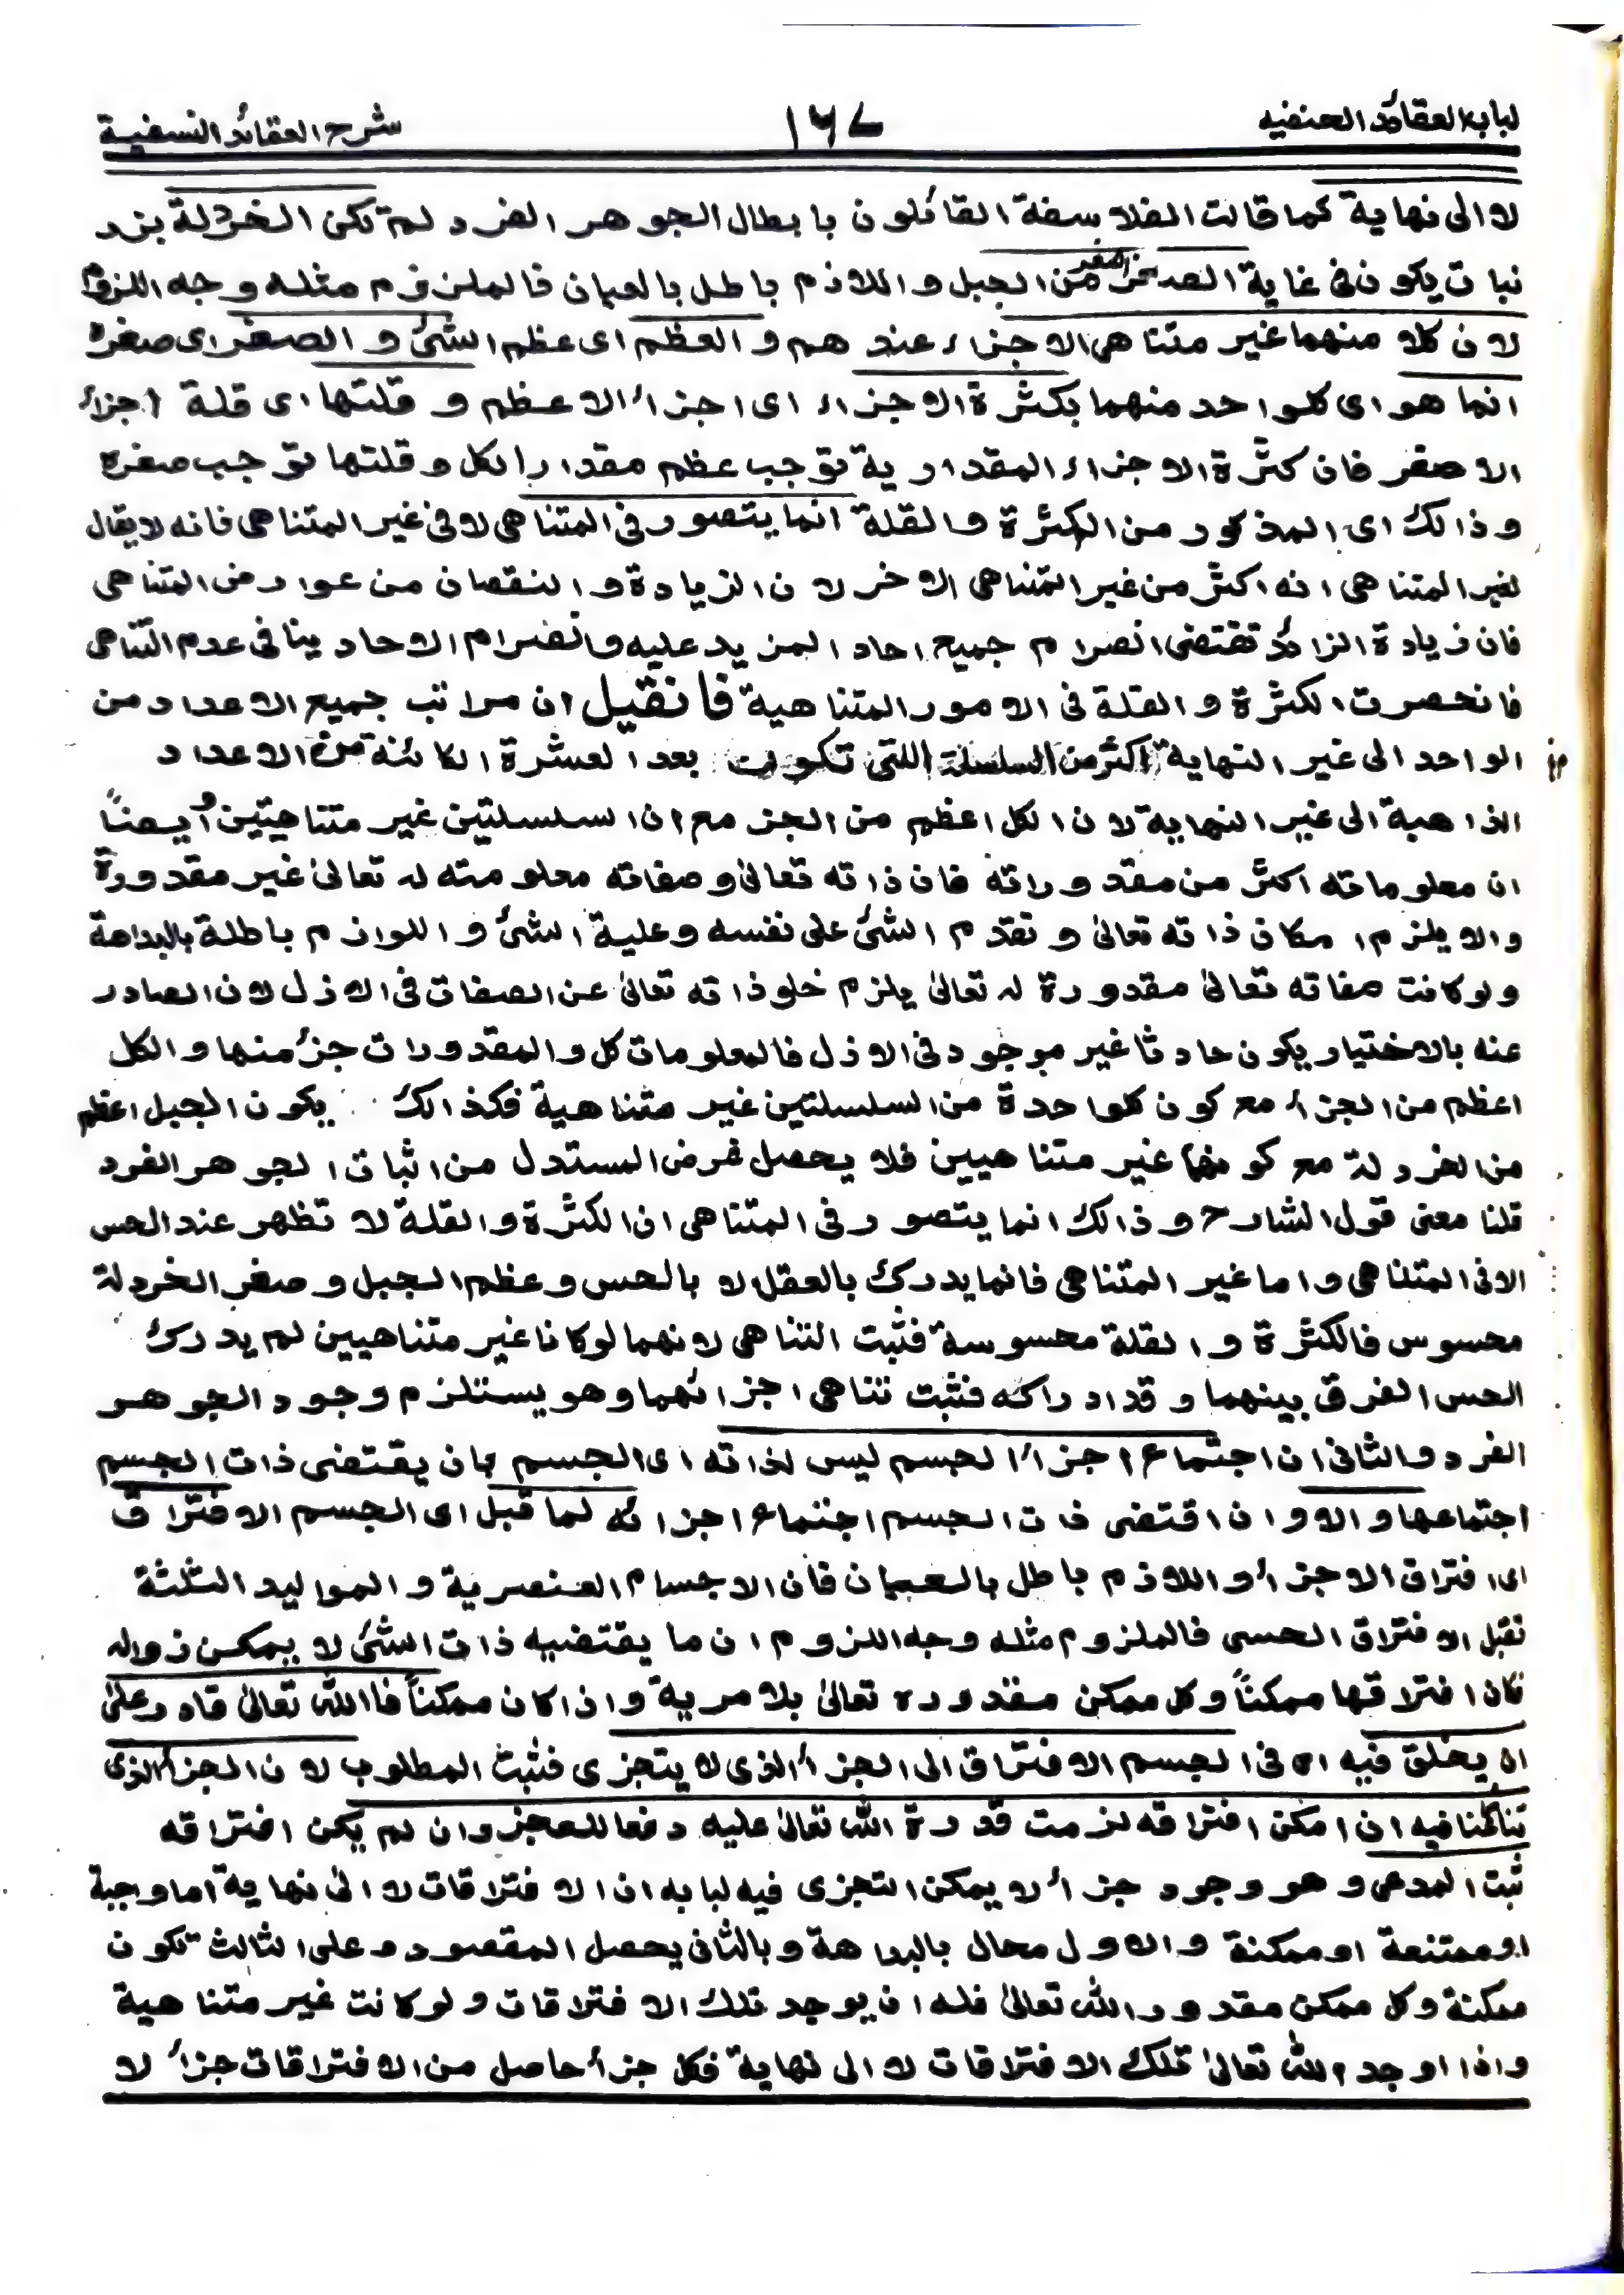 لباب العقائد الحنفيه
١٦٧
شرح العقائد النسفية
لا الى نهاية كما قالت الفلاسفة القائلون بابطال الجوهر الفرد لم تكن الخردلة بزد
نبات يكون فى غاية الصغر اصغر من الجبل واللازم باطل بالعيان فالملزوم مثله وجه اللزوم
لان كلا منهما غير متناهى الاجزاء عندهم والعظم اى عظم الشئ والصغر اى صغره
انما هو اى كلواحد منهما بكثرة الاجزاء اى اجزاء الاعظم وقلتها اى قلة اجزاء
الاصغر فان كثرة الاجزاء المقدارية توجب عظم مقدار الكل وقلتها توجب صغره
وذالك اى المذكور من الكثرة والقلة انما يتصور فى المتناهى لا فى غير المتناهى فانه لا يقال
لغير المتناهى انه اكثر من غير المتناهى الاخر لان الزيادة والنقصان من عوارض المتناهى
فان زيادة الزائد تقتضى انصرام جميع احاد المزيد عليه وانصرام الاحاد ينافى عدم التناهى
فانحصرت الكثرة والقلة فى الامور المتناهية فانقيل ان مراتب جميع الاعداد من
الواحد الى غير النهاية اكثر من السلسلة اللتى تكونت بعد العشرة الكائنة من الاعداد
الذاهبة الى غير النهاية لان الكل اعظم من الجزء مع ان السلسلتين غير متناهيتين وأيضاً
ان معلوماته اكثر من مقدوراته فان ذاته تعالىٰ وصفاته معلومته له تعالىٰ غير مقدورة
والا يلزم امكان ذاته تعالىٰ وتقدم الشئ على نفسه وعلية الشئ واللوازم باطلة بالبداهة
ولو كانت صفاته تعالىٰ مقدورة له تعالىٰ يلزم خلو ذاته تعالىٰ عن الصفات فى الازل لان الصادر
عنه بالاختيار يكون حادثا غير موجود فى الازل فالمعلومات كل والمقدورات جزء منها والكل
اعظم من الجزء مع كون كلواحدة من السلسلتين غير متناهية فكذالك يكون الجبل اعظم
من الخردلة مع كونهما غير متناهيين فلا يحصل غرض المستدل من اثبات الجوهر الفرد
قلنا معنى قول الشارح وذالك انما يتصور فى المتناهى ان الكثرة والقلة لا تظهر عند الحس
الا فى المتناهى واما غير المتناهى فانما يدرك بالعقل لا بالحس وعظم الجبل وصغر الخردلة
محسوس فالكثرة والقلة محسوسة فثبت التناهى لانهما لو كانا غير متناهيين لم يدرك
الحس الفرق بينهما وقد ادراكه فثبت تناهى اجزائهما وهو يستلزم وجود الجوهر
الفرد والثانى ان اجتماع اجزاء الجسم ليس لذاته اى الجسم بان يقتضى ذات الجسم
اجتماعها والا وان اقتضى ذات الجسم اجتماع اجزائه لما قبل اى الجسم الافتراق
اى افتراق الاجزاء واللازم باطل بالعيان فان الاجسام العنصرية والمواليد الثلثة
تقبل الافتراق الحسى فالملزوم مثله وجه اللزوم ان ما يقتضيه ذات الشئ لا يمكن زواله
فكان افتراقها ممكناً وكل ممكن مقدوره تعالىٰ بلا مرية واذا كان ممكناً فاالله تعالىٰ قادر علىٰ
ان يخلق فيه اى فى الجسم الافتراق الى الجزء الذى لا يتجزى فثبت المطلوب لان الجزء الذى
تنازعنا فيه ان امكن افتراقه لزمت قدرة الله تعالىٰ عليه دفعا للعجز وان لم يكن افتراقه
ثبت المدعى وهو وجود جزء لا يمكن التجزى فيه لبابه ان الافتراقات لا الى نهاية اما وجبة
او ممتنعة او ممكنة والاول محال بالبداهة وبالثانى يحصل المقصود وعلى الثالث تكون
ممكنة وكل ممكن مقدور الله تعالىٰ فله ان يوجد تلك الافتراقات ولو كانت غير متناهية
واذا اوجد الله تعالىٰ تلك الافتراقات لا الى نهاية فكل جزء حاصل من الافتراقات جزء لا